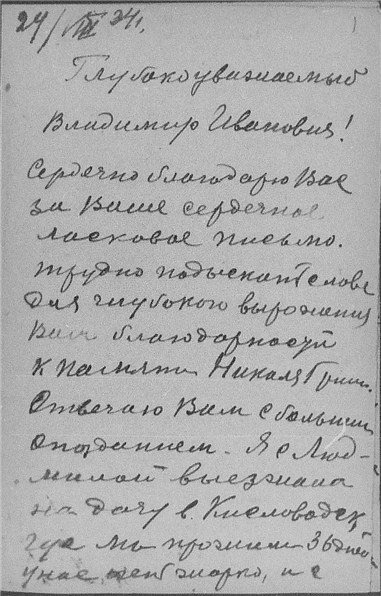 24/VIII 24г.
Глубокоуважаемый
Владимир Иванович!
Сердечно благодарю Вас
за Ваше сердечное
ласковое письмо.
Трудно подыскать слова
для глубокого выражения
Вам благодарности
к памяти Николая Григ.
Отвечаю Вам с большим
опозданием. Я с Люд-
милой выезжала
на дачу в Кисловодск
где мы прожили 36 дней
у нас жарко, и с